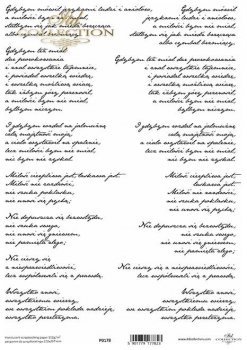 Gdybym mówił językami ludzi i aniołów,
a miłości bym nie miał,
stałbym się jak miedź brzęcząca
albo cymbał brzmiący.
Gdybym też miał
dar prorokowania
i znał wszystkie tajemnice,
i posiadał wszelką wiedzę,
i wszelką możliwą wiarę,
tak iżbym góry przenosił,
a miłości bym nie miał,
byłbym niczym.
I gdybym rozdał na jałmużnę
całą majętność moją,
a ciało wystawił na spalenie,
lecz miłości bym nie miał,
nic bym nie zyskał.
Miłość cierpliwa jest, łaskawa jest.
Miłość nie zazdrości,
nie szuka poklasku,
nie unosi się pychą;
Nie dopuszcza się bezwstydu,
nie szuka swego,
nie unosi się gniewem,
nie pamięta złego;
Nie cieszy się
z niesprawiedliwości,
lecz współweseli się z prawdą.
Wszystko znosi,
wszystkiemu wierzy,
we wszystkim pokłada nadzieję,
wszystko przetrzyma.
Gdybym mówił
językami ludzi i aniołów,
a miłości bym nie miał,
stałbym się jak miedź brzęcząca
albo cymbał brzmiący.
Gdybym też miał dar prorokowania
i znał wszystkie tajemnice,
i posiadał wszelką wiedzę,
i wszelką możliwą wiarę,
tak iżbym góry przenosił,
a miłości bym nie miał,
byłbym niczym.
I gdybym rozdał na jałmużnę
całą majętność moją,
a ciało wystawił na spalenie,
lecz miłości bym nie miał,
nic bym nie zyskał.
Miłość cierpliwa jest,
łaskawa jest.
Miłość nie zazdrości,
nie szuka poklasku,
nie unosi się pychą;
Nie dopuszcza się bezwstydu,
nie szuka swego,
nie unosi się gniewem,
nie pamięta złego;
Nie cieszy się
z niesprawiedliwości,
lecz współweseli się z prawdą.
Wszystko znosi,
wszystkiemu wierzy,
we wszystkim pokłada nadzieję,
wszystko przetrzyma.
P0178
COLLECTION